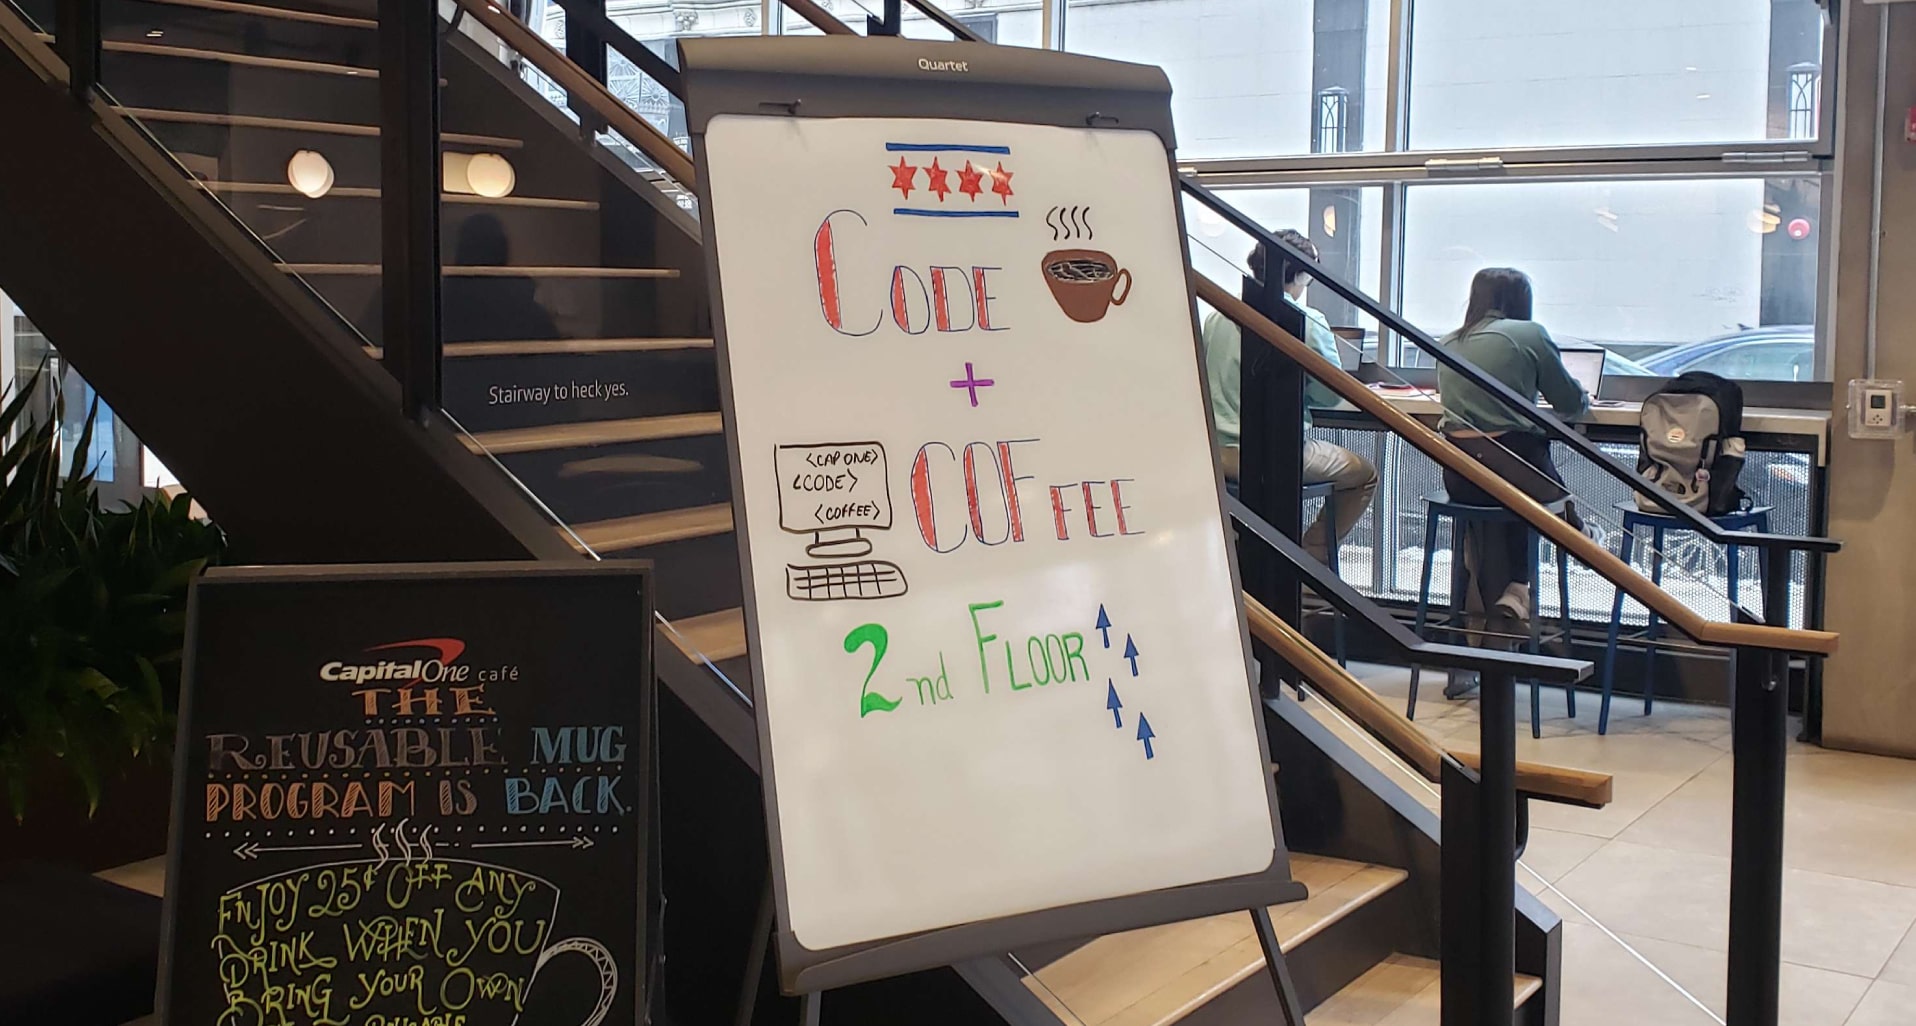 Quartet
CODE
+
<CAP ONE>
<CODE>
<COFFEE>
COFFEE
2nd FLOOR
Stairway to heck yes.
CapitalOne café
THE
REUSABLE MUG
PROGRAM IS BACK.
ENJOY 25¢ OFF ANY
DRINK WHEN YOU
BRING YOUR OWN
REUSABLE